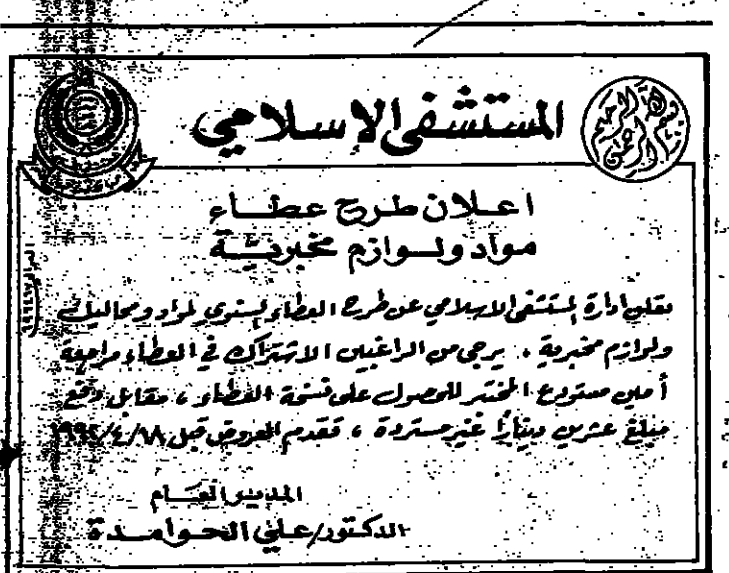 بسم الله الرحمن الرحيم
المستشفى الإسلامي
اعلان طرح عطاء
مواد ولوازم مخبرية
تعلن ادارة المستشفى الاسلامي عن طرح العطاء السنوي لمواد ومحاليل
ولوازم مخبرية . يرجى من الراغبين الاشتراك في العطاء مراجعة
أمين مستودع المختبر للحصول على نسخة العطاء ، مقابل دفع
مبلغ عشرين ديناراً غير مستردة ، تقدم العروض قبل
المدير العام
الدكتور/علي الحوامدة